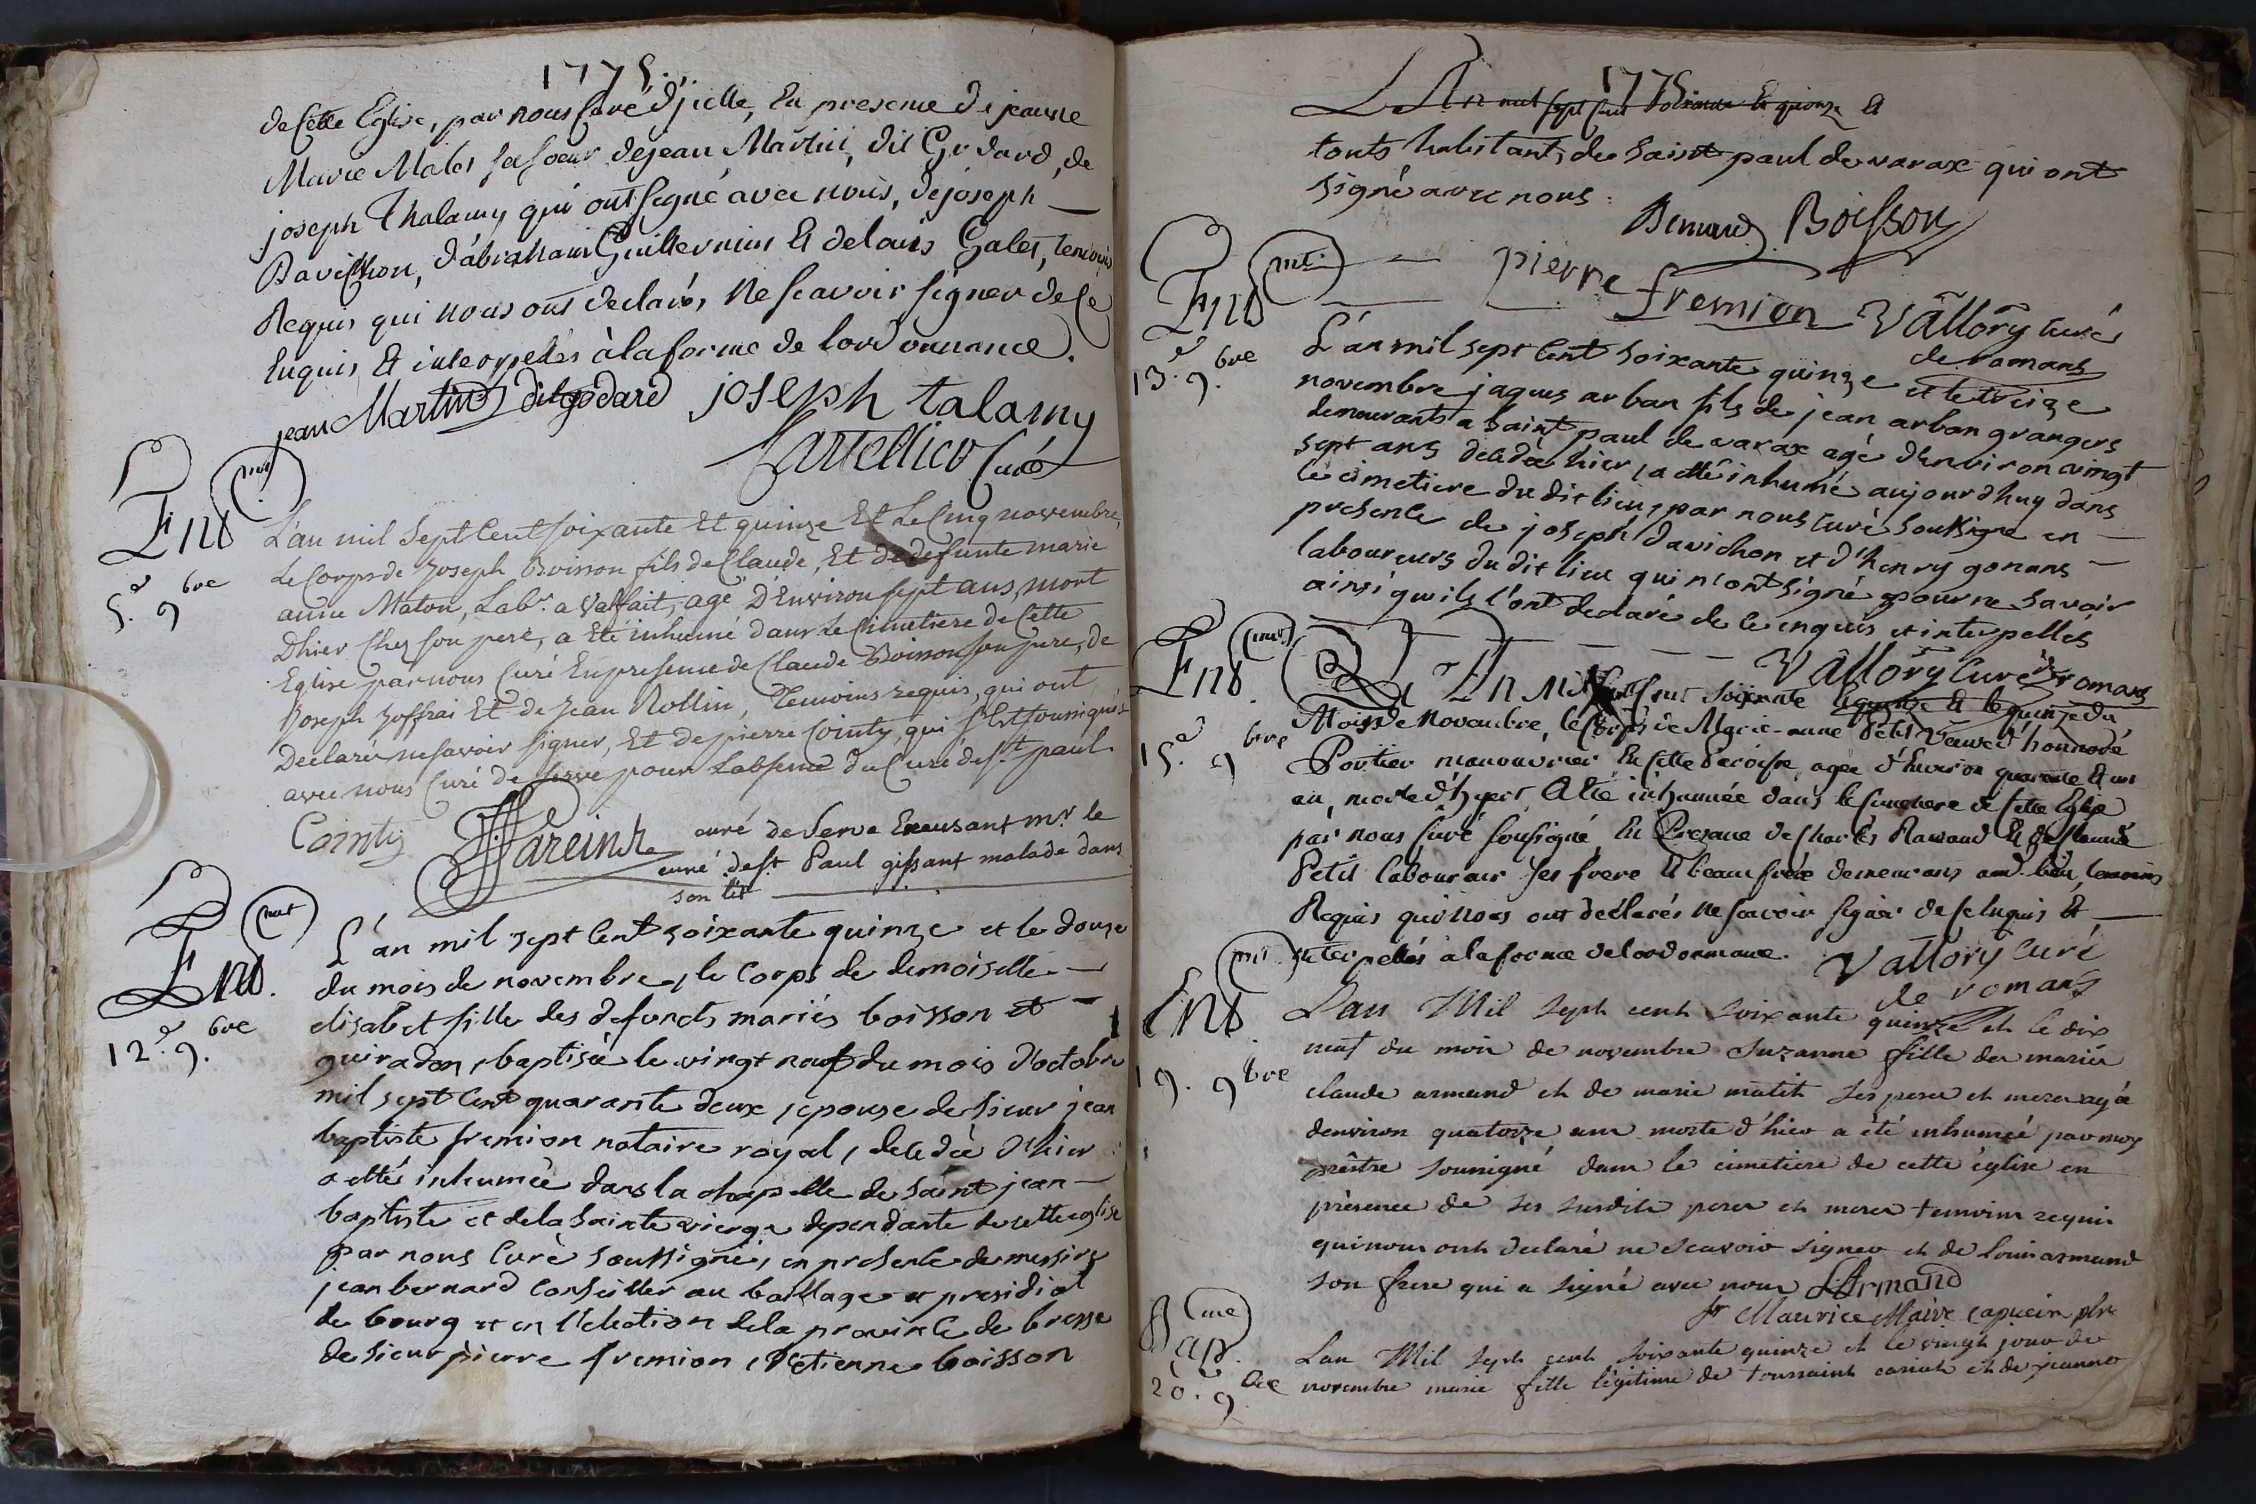 1775.
de cette Eglise, par nous Curé d'jcelle, En presence de jeanne
Marie Malet sa soeur, de jean Martin, dit Godard, de
joseph Thalamy qui ont signé avec nous, de joseph
Davichon, d'abraham Guillermin Et de louis Galet, temoins
Requis qui nous ont declaré, Ne scavoir signer de ce
Enquis Et interpellés à la forme de lordonnance.
jean Martin dit godard joseph talamy
Curé
Ent
mt
5.e 9bre
L'an mil Sept Cent soixante Et quinze Et Le Cinq novembre,
Le Corps de Joseph Boisson fils de Claude, Et de defunte marie
anne Maton, Labr. a Vaffait, agé D'Environ sept ans, mort
Dhier Chez son pere, a Eté inhumé dans Le Cimetiere de Cette
Eglise par nous Curé En presence de Claude Boisson son pere, de
Joseph Joffrai Et de Jean Rollin, Temoins requis, qui ont
Declaré ne savoir signer, Et de pierre Cointy, qui s'est soussigné
avec nous Curé de servé pour Labsence du Curé de st. paul.
Cointy Hareinck curé de Serve Excusant mr. le
curé de st. Paul gissant malade dans
son lit
Ent
mt
12.e 9.bre
L'an mil sept Cent soixante quinze et le douze
du mois de novembre, le Corps de demoiselle
elisabet fille des defuncts mariés boisson et
guiradon, baptisée le vingt neuf du mois d'octobre
mil sept Cent quarante deux, epouse de sieur jean
baptiste fremion notaire royal, decedée d'hier
a etté inhumée dans la chapelle de saint jean
baptiste et de la sainte vierge dependante de cette eglise
par nous Curé soussigné, en presence de messire
jean bernard Conseiller au baillage et presidial
de bourg et en l'election de la province de bresse
de sieur pierre fremion, d'etienne boisson
1775
L'An mil sept Cent Soixante Et quinze Et
touts habitants de saint paul de varax qui ont
signé avec nous.
Bernard Boisson
pierre fremion Vallory curé
de romans
Ent
mt
13.e 9.bre
L'an mil sept Cent soixante quinze et le treize
novembre jaques arban fils de jean arban grangers
demeurants a saint paul de varax agé d'environ vingt
sept ans decedé hier, a etté inhumé aujourdhuy dans
le cimetiere du dit lieu, par nous curé soussigné en
presence de joseph davichon et d'henry gonans
laboureurs du dit lieu qui n'ont signé pour ne savoir
ainsi qu'ils l'ont declaré de ce enquis et interpellés
Vallory Curé de romans
Ent
mt
15.e 9bre
L'An Mil sept Cent soixante Et quinze Et le quinze du
Mois de Novembre, le Corps de Marie-anne Petit Veuve d'honnoré
Portier manouvrier En cette Paroisse, agée d'Environ quarante Et un
an, morte d'hyer, A Eté inhumée dans le cimetiere de cette Eglise
par nous Curé soussigné, En Presence de Charles Ravaud Et de Claude
Petit laboureur ses frere Et beau frere demeurans aud. lieu, temoins
Requis qui nous ont declarés Ne scavoir signer de ce Enquis Et
interpellés à la forme de lordonnance. Vallory curé
de romans
Ent
mt
19. 9bre
L'an Mil Sept cent soixante quinze et le dix
neuf du mois de novembre Suzanne fille des mariés
claude armand et de marie matit ses peres et meres agé
denviron quatorze ans morte d'hier a été inhumée par moy
prêtre soussigné dans le cimetiere de cette église en
présence de ses susdits peres et meres temoins requis
qui nous ont declaré ne scavoir signer et de louis armand
son frere qui a signé avec nous LArmand
fr Maurice Maire capucin ptre
Bap.
me
20. 9bre
L'an Mil Sept cent soixante quinze et le vingt jour de
novembre marie fille légitime de toussaint et de jeanne